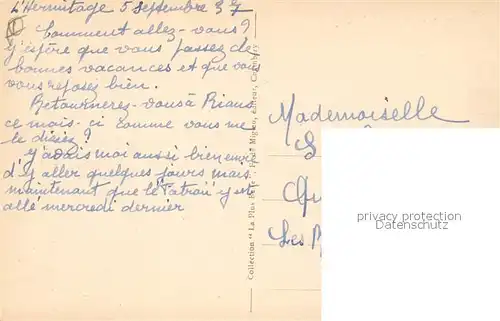 L'Hermitage 5 Septembre 37
Comment allez-vous?
J'espère que vous passez de
bonnes vacances et que vous
vous reposez bien.
Retournerez-vous à Rians
ce mois-ci comme vous me
le disiez?
J'avais moi aussi bien envie
d'y aller quelques jours mais
maintenant que le y est
allé mercredi dernier
Collection "La Plus Belle"
Mademoiselle
Les
privacy protection
Datenschutz